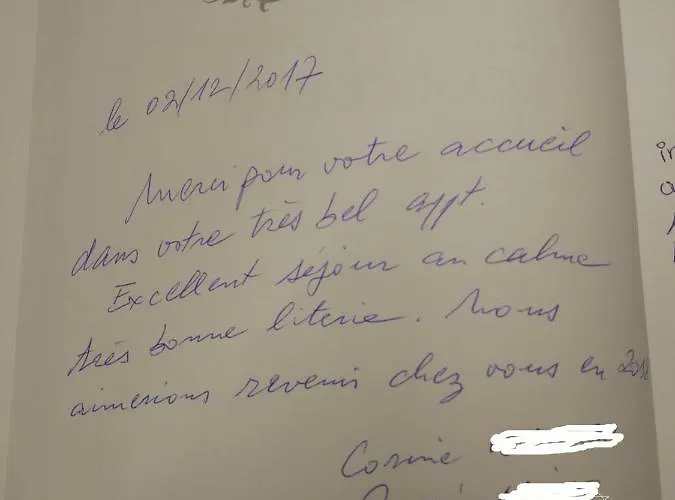 le 02/12/2017
Merci pour votre accueil
dans votre très bel appt.
Excellent séjour au calme
très bonne literie. Nous
aimerions revenir chez vous en 2018
Corine